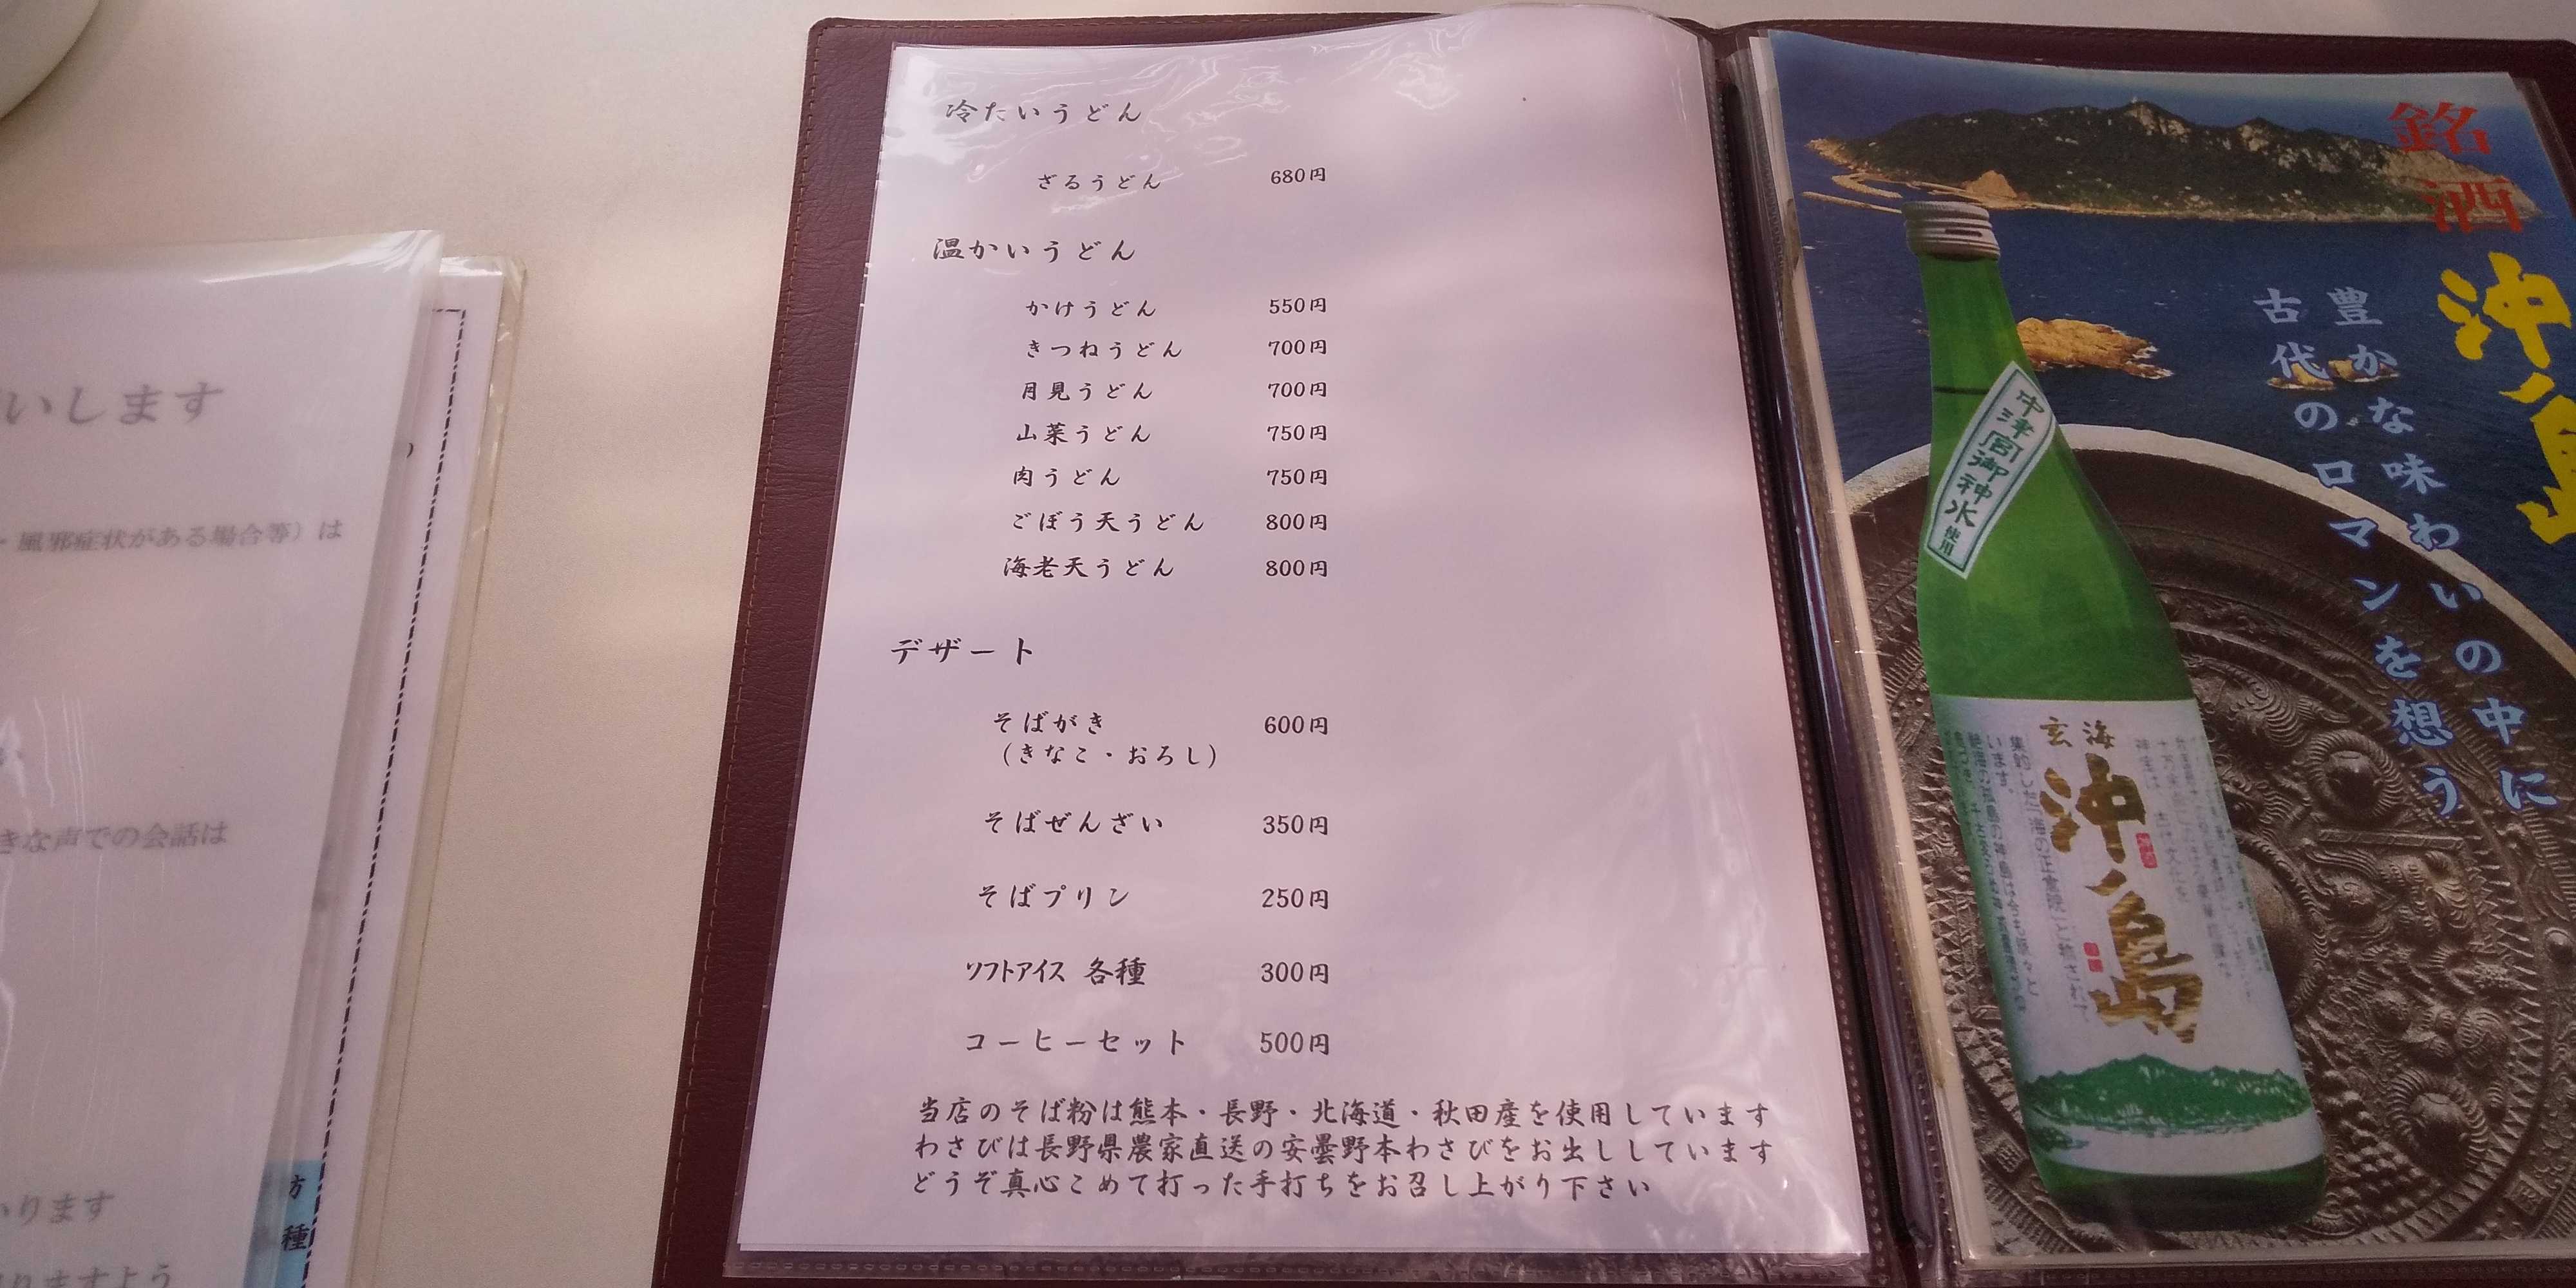 いします
・風邪症状がある場合等）は
きな声での会話は
いります
りますよう
方
種
冷たいうどん
ざるうどん 680円
温かいうどん
かけうどん 550円
きつねうどん 700円
月見うどん 700円
山菜うどん 750円
肉うどん 750円
ごぼう天うどん 800円
海老天うどん 800円
デザート
そばがき 600円
（きなこ・おろし）
そばぜんざい 350円
そばプリン 250円
ソフトアイス 各種 300円
コーヒーセット 500円
当店のそば粉は熊本・長野・北海道・秋田産を使用しています
わさびは長野県農家直送の安曇野本わさびをお出ししています
どうぞ真心こめて打った手打ちをお召し上がり下さい
銘酒
沖ノ島
豊かな味わいの中に
古代のロマンを想う
中津宮御神水使用
玄海
沖ノ島